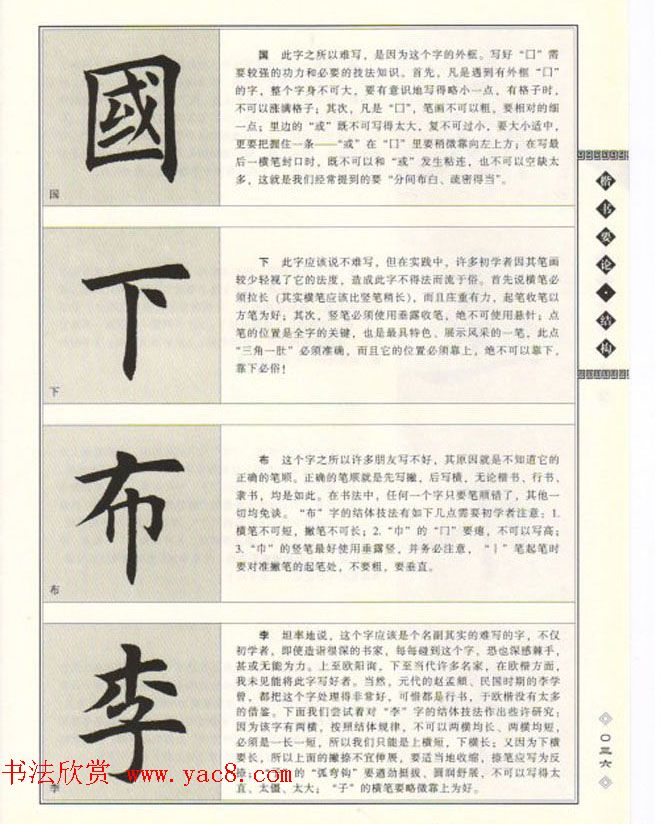 國
国
国 此字之所以难写，是因为这个字的外框。写好“囗”需
要较强的功力和必要的技法知识。首先，凡是遇到有外框“囗”
的字，整个字身不可大，要有意识地写得略小一点，有格子时，
不可以涨满格子；其次，凡是“囗”，笔画不可以粗，要相对的细
一点；里边的“或”既不可写得太大，复不可过小，要大小适中，
更要把握住一条——“或”在“囗”里要稍微靠向左上方；在写最
后一横笔封口时，既不可以和“或”发生粘连，也不可以空缺太
多，这就是我们经常提到的要“分间布白、疏密得当”。
下
下
下 此字应该说不难写，但在实践中，许多初学者因其笔画
较少轻视了它的法度，造成此字不得法而流于俗。首先说横笔必
须拉长（其实横笔应该比竖笔稍长），而且庄重有力，起笔收笔以
方笔为好；其次，竖笔必须使用垂露收笔，绝不可使用悬针；点
笔的位置是全字的关键，也是最具特色、展示风采的一笔，此点
“三角一肚”必须准确，而且它的位置必须靠上，绝不可以靠下，
靠下必俗！
布
布
布 这个字之所以许多朋友写不好，其原因就是不知道它的
正确的笔顺。正确的笔顺就是先写撇，后写横，无论楷书、行书、
隶书，均是如此。在书法中，任何一个字只要笔顺错了，其他一
切均免谈。“布”字的结体技法有如下几点需要初学者注意：1.
横笔不可短，撇笔不可长；2.“巾”的“冂”要瘦，不可以写高；
3.“巾”的竖笔最好使用垂露竖，并务必注意，“丨”笔起笔时
要对准撇笔的起笔处，不要粗，要垂直。
李
李
李 坦率地说，这个字应该是个名副其实的难写的字，不仅
初学者，即使造诣很深的书家，每每碰到这个字，恐也深感棘手，
甚或无能为力。上至欧阳询，下至当代许多名家，在欧楷方面，
我未见能将此字写好者。当然，元代的赵孟頫、民国时期的李学
曾，都把这个字处理得非常好，可惜都是行书，于欧楷没有太多
的借鉴。下面我们尝试着对“李”字的结体技法作出些许研究；
因为该字有两横，按照结体规律，不可以两横均长、两横均短，
必须是一长一短，所以我们只能是上横短，下横长；又因为下横
要长，所以上面的撇捺不宜伸展，要适当地收缩，捺笔应写为反
捺；的“弧弯钩”要遒劲挺拔、圆润舒展，不可以写得太
直、太僵、太大；“子”的横笔要略微靠上为好。
楷书要论·结构
〇三六
书法欣赏 www.yac8.com